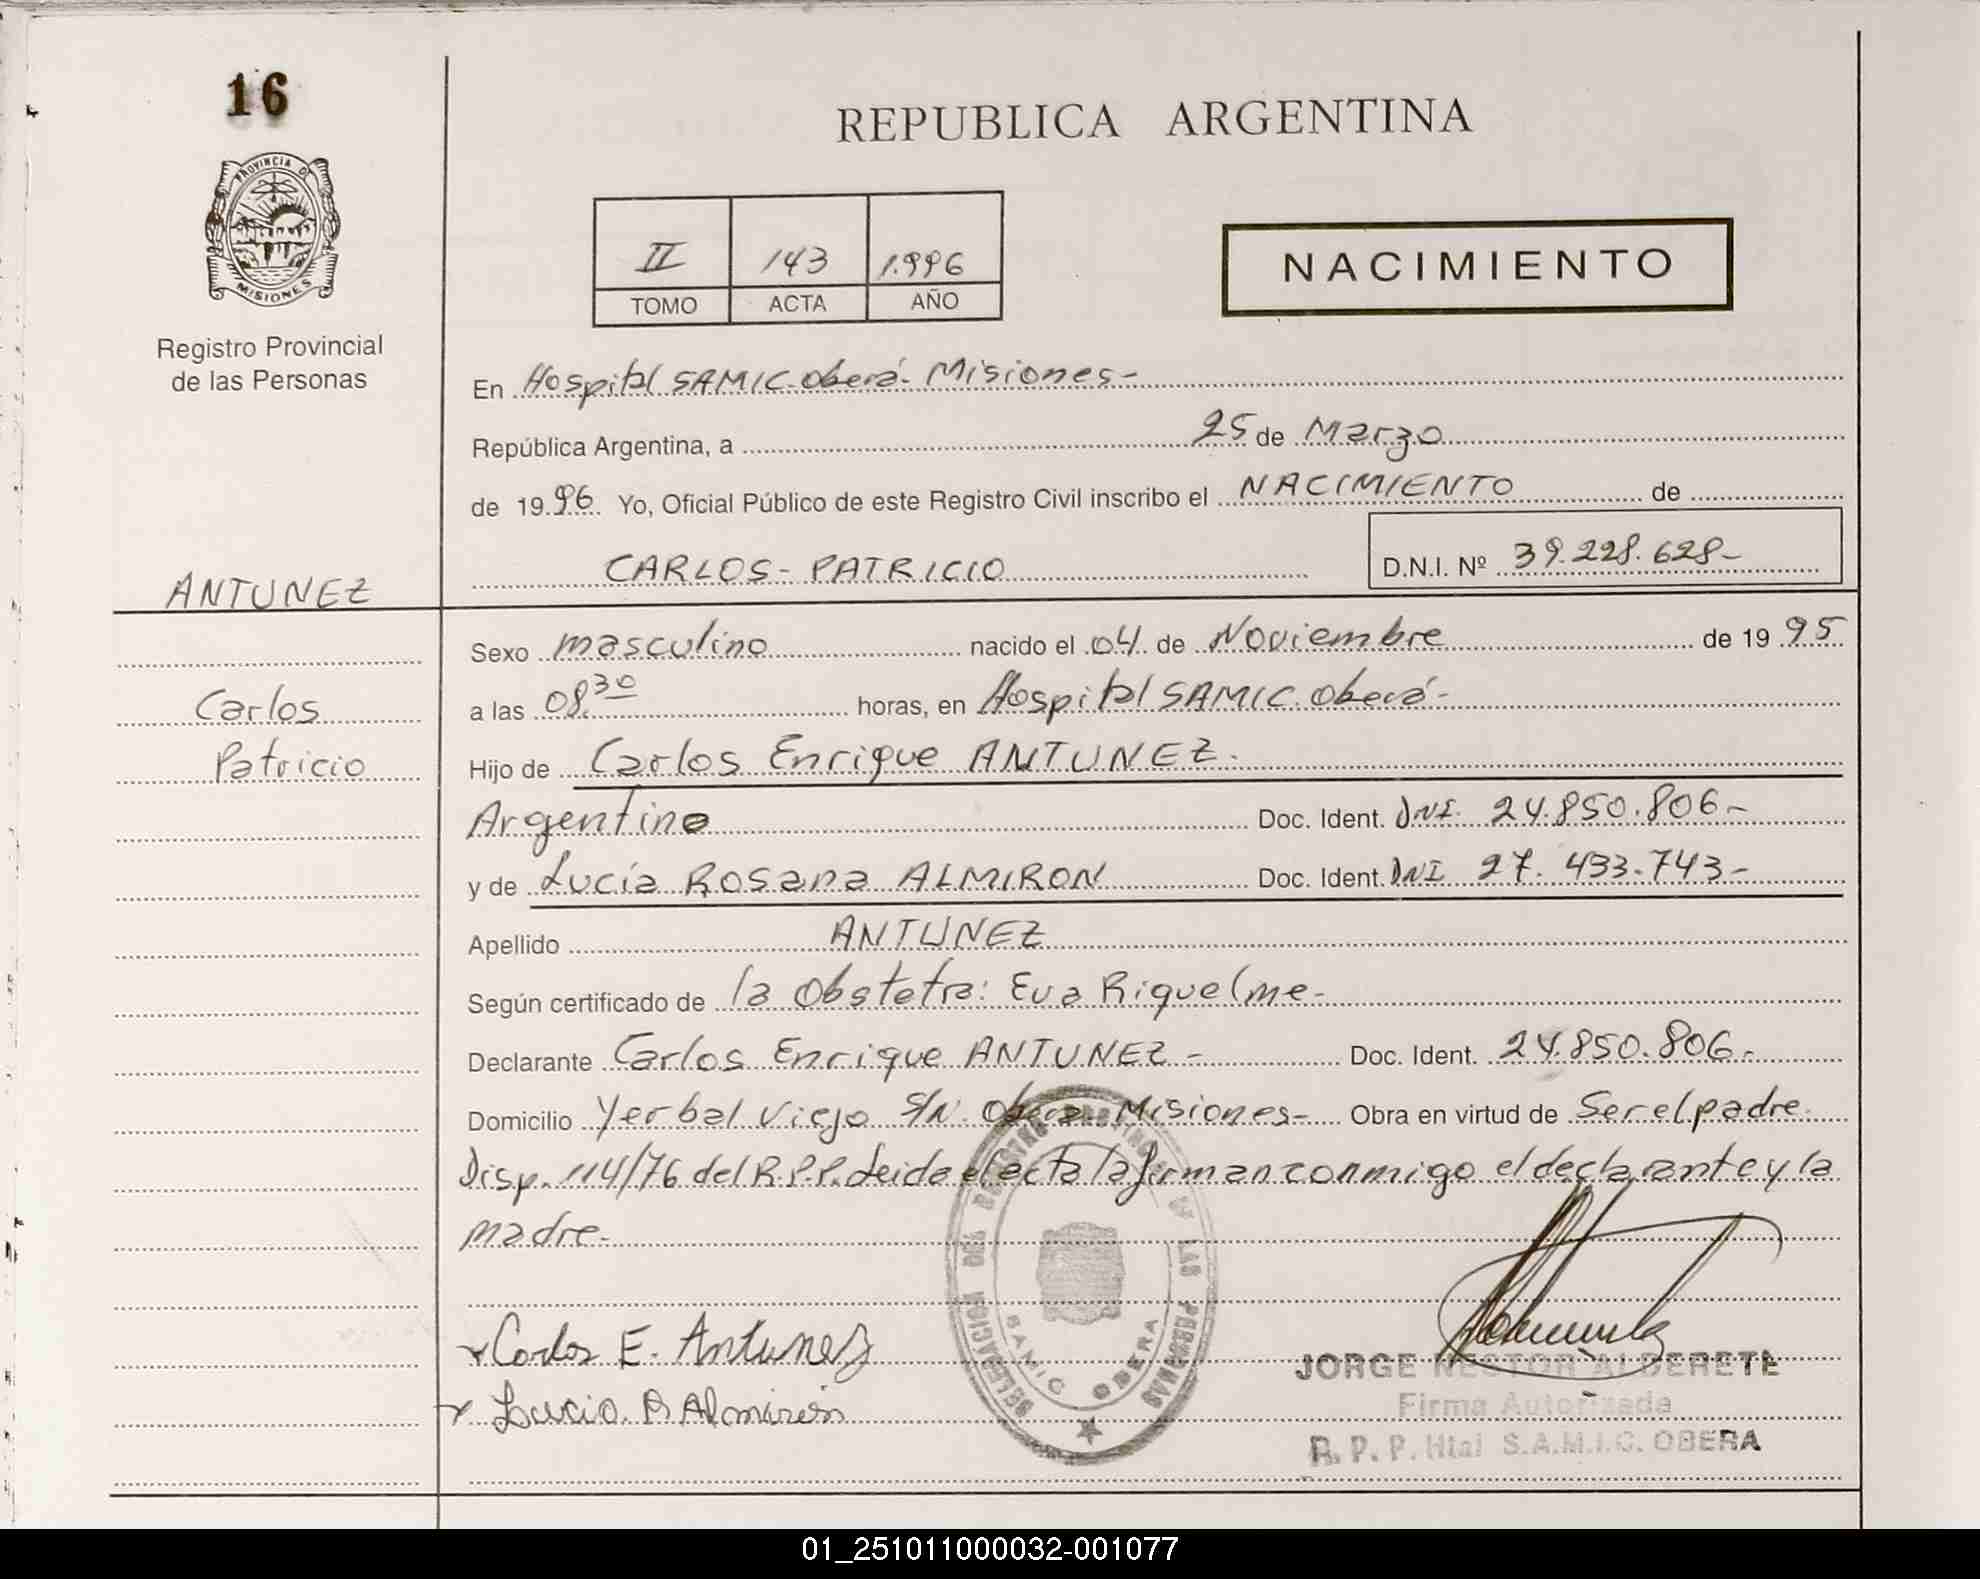 16
REPUBLICA ARGENTINA
PROVINCIA DE
MISIONES
Registro Provincial
de las Personas
II 143 1.996
TOMO ACTA AÑO
NACIMIENTO
En Hospital SAMIC. Oberá. Misiones-
República Argentina, a 25 de Marzo
de 1996. Yo, Oficial Público de este Registro Civil inscribo el NACIMIENTO de
CARLOS - PATRICIO D.N.I. Nº 39.228.628-
ANTUNEZ
Sexo masculino nacido el 04 de Noviembre de 1995
Carlos
a las 08.30 horas, en Hospital SAMIC. Oberá-
Patricio
Hijo de Carlos Enrique ANTUNEZ.
Argentino Doc. Ident. DNI. 24.850.806-
y de Lucía Rosana ALMIRON Doc. Ident. DNI 27.433.743-
Apellido ANTUNEZ
Según certificado de la Obstetra: Eva Riquelme-
Declarante Carlos Enrique ANTUNEZ- Doc. Ident. 24.850.806-
Domicilio Yerbal Viejo S/N. Oberá Misiones- Obra en virtud de Ser el padre
Disp. 114/76 del R.P.P. Leida el acta la firman conmigo el declarante y la
madre-
Carlos E. Antunez
Lucia R Almirón
DELEGACION DEL REGISTRO PROVINCIAL DE LAS PERSONAS
SAMIC OBERA
JORGE NESTOR ALDERETE
Firma Autorizada
R. P. P. Htal S.A.M.I.C. OBERA
01_251011000032-001077